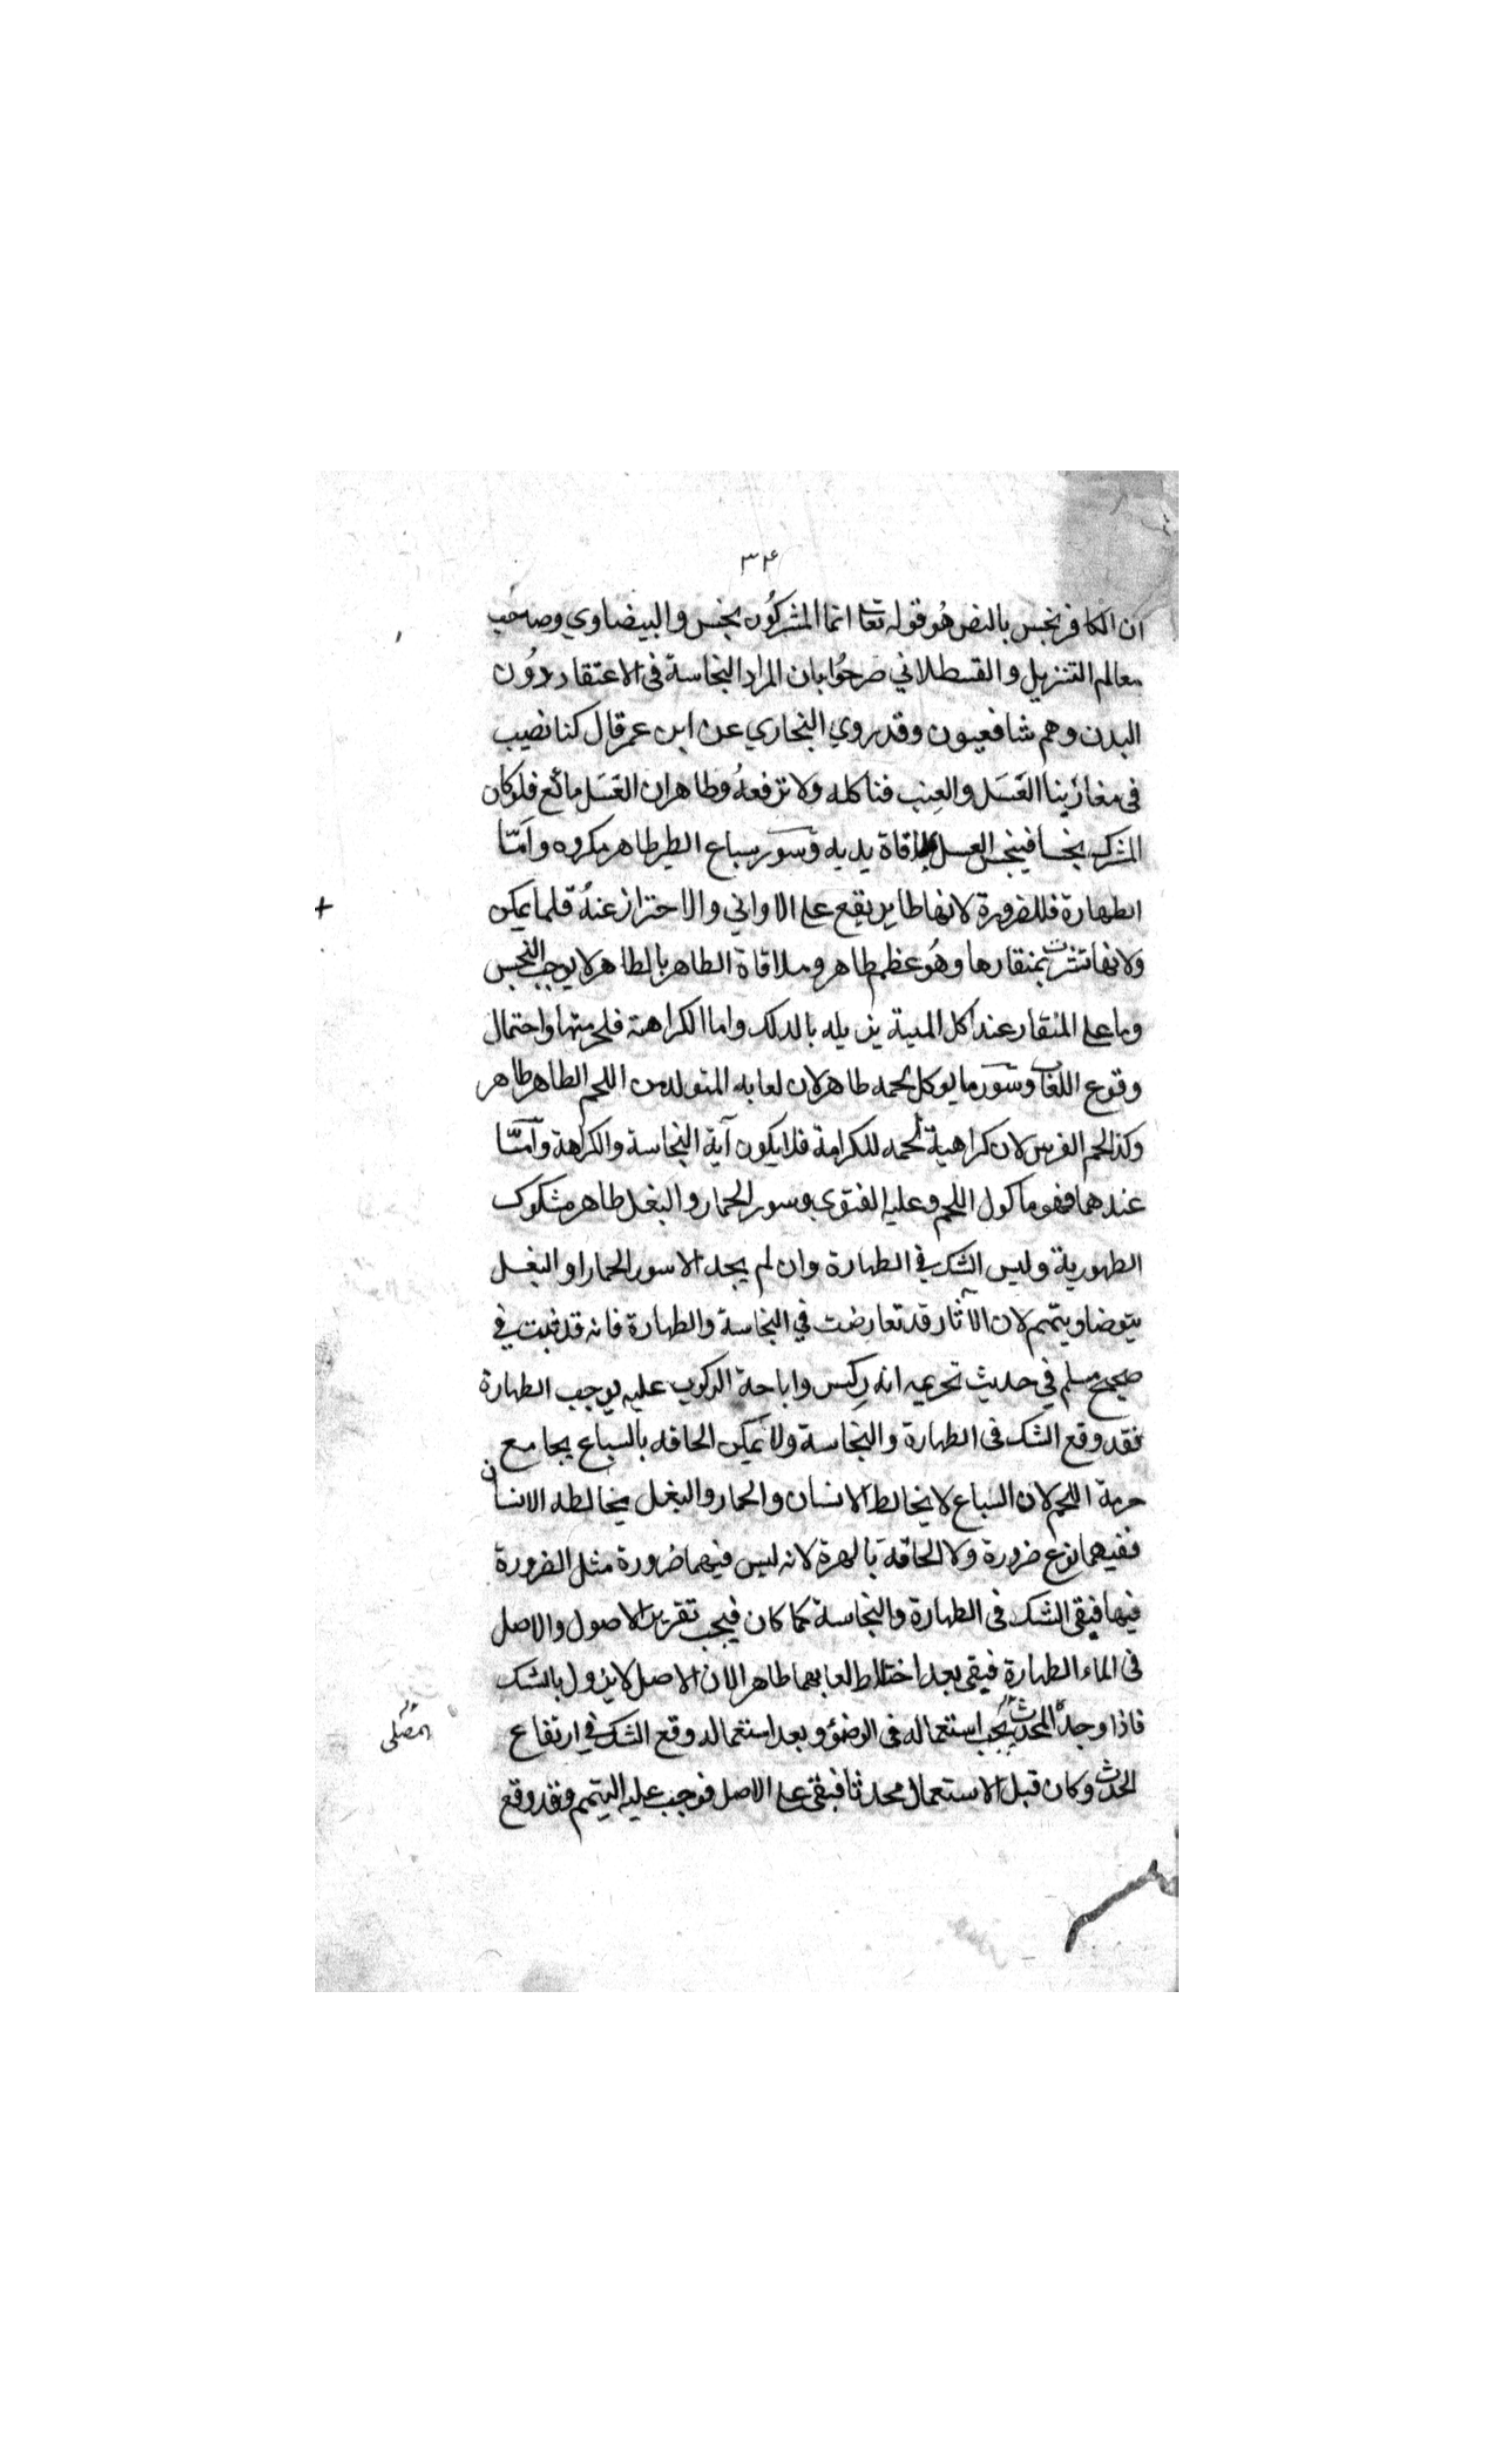 ٣٤
ان الكافر نجس بالنص هو قوله تعا انما المشركون نجس والبيضاوي وصاحب
معالم التنزيل والقسطلاني صرحوا بان المراد النجاسة في الاعتقاد دون
البدن وهم شافعيون وقد روي البخاري عن ابن عمر قال كنا نصيب
في مغازينا العسل والعنب فناكله ولا نرفعه وظاهر ان العسل مائع فلو كان
المشرك نجسا فينجس العسل بملاقاة يديه وسور سباع الطير طاهر مكروه وامّا
الطهارة فللضرورة لانها طاير يقع على الاواني والاحتراز عنه قلما يمكن
ولانها تشرب بمنقارها وهو عظم طاهر وملاقاة الطاهر بالطاهر لا يوجب النجس
وما على المنقار عند اكل الميتة يزيله بالدلك واما الكراهة فلحرمتها واحتمال
وقوع اللعاب وسور ما يوكل لحمه طاهر لان لعابه المتولد من اللحم الطاهر طاهر
وكذا لحم الفرس لان كراهية لحمه للكرامة فلا يكون آية النجاسة والكراهة وامّا
عندهما فهو ماكول اللحم وعليه الفتوى وسور الحمار والبغل طاهر مشكوك
الطهورية وليس الشك في الطهارة وان لم يجد الا سور الحمار او البغل
يتوضا ويتمم لان الآثار قد تعارضت في النجاسة والطهارة فانه قد ثبت في
صحيح مسلم في حديث تحريمه انه ركس واباحة الركوب عليه يوجب الطهارة
فقد وقع الشك في الطهارة والنجاسة ولا يمكن الحاقه بالسباع بجامع
حرمة اللحم لان السباع لا يخالط الانسان والحمار والبغل يخالطه الانسان
ففيهما نوع ضرورة ولا الحاقه بالهرة لانه ليس فيهما ضرورة مثل الضرورة
فيها فيبقى الشك في الطهارة والنجاسة كما كان فيجب تقرير الاصول والاصل
في الماء الطهارة فيبقى بعد اختلاط لعابهما طاهرا لان الاصل لا يزول بالشك
فاذا وجده المحدث يجب استعماله في الوضؤ وبعد استعماله وقع الشك في ارتفاع
الحدث وكان قبل الاستعمال محدثا فبقي على الاصل فوجب عليه التيمم وفقد وقع
المصلى